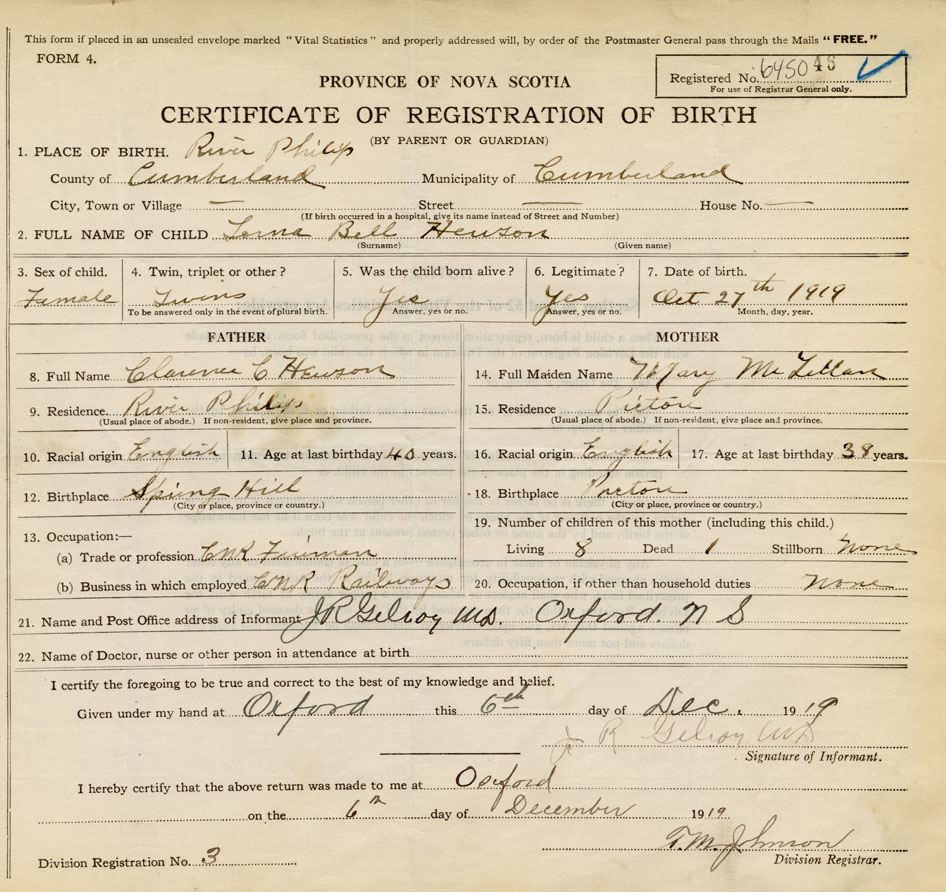 This form if placed in an unsealed envelope marked "Vital Statistics" and properly addressed will, by order of the Postmaster General pass through the Mails "FREE."
FORM 4.
PROVINCE OF NOVA SCOTIA
Registered No. 6450 46
For use of Registrar General only.
CERTIFICATE OF REGISTRATION OF BIRTH
(BY PARENT OR GUARDIAN)
1. PLACE OF BIRTH. River Philip
County of Cumberland Municipality of Cumberland
City, Town or Village — Street — House No. —
(If birth occurred in a hospital, give its name instead of Street and Number)
2. FULL NAME OF CHILD Lorna Bell Hewson
(Surname) (Given name)
3. Sex of child. 4. Twin, triplet or other? 5. Was the child born alive? 6. Legitimate? 7. Date of birth.
Female Twins Yes Yes Oct 27th 1919
To be answered only in the event of plural birth. Answer, yes or no. Answer, yes or no. Month, day, year.
FATHER MOTHER
8. Full Name Clarence C Hewson 14. Full Maiden Name Mary McLellan
9. Residence. River Philip 15. Residence Pictou
(Usual place of abode.) If non-resident, give place and province. (Usual place of abode.) If non-resident, give place and province.
10. Racial origin English 11. Age at last birthday 40 years. 16. Racial origin English 17. Age at last birthday 38 years.
12. Birthplace Spring Hill 18. Birthplace Pictou
(City or place, province or country.) (City or place, province or country.)
13. Occupation:— 19. Number of children of this mother (including this child.)
(a) Trade or profession CNR Fireman Living 8 Dead 1 Stillborn None
(b) Business in which employed CNR Railways 20. Occupation, if other than household duties None
21. Name and Post Office address of Informant J R Gilroy M.D. Oxford. N S
22. Name of Doctor, nurse or other person in attendance at birth
I certify the foregoing to be true and correct to the best of my knowledge and belief.
Given under my hand at Oxford this 6th day of Dec. 1919
J R Gilroy MD
Signature of Informant.
I hereby certify that the above return was made to me at Oxford
on the 6th day of December 1919
T.M. Johnson
Division Registration No. 3 Division Registrar.